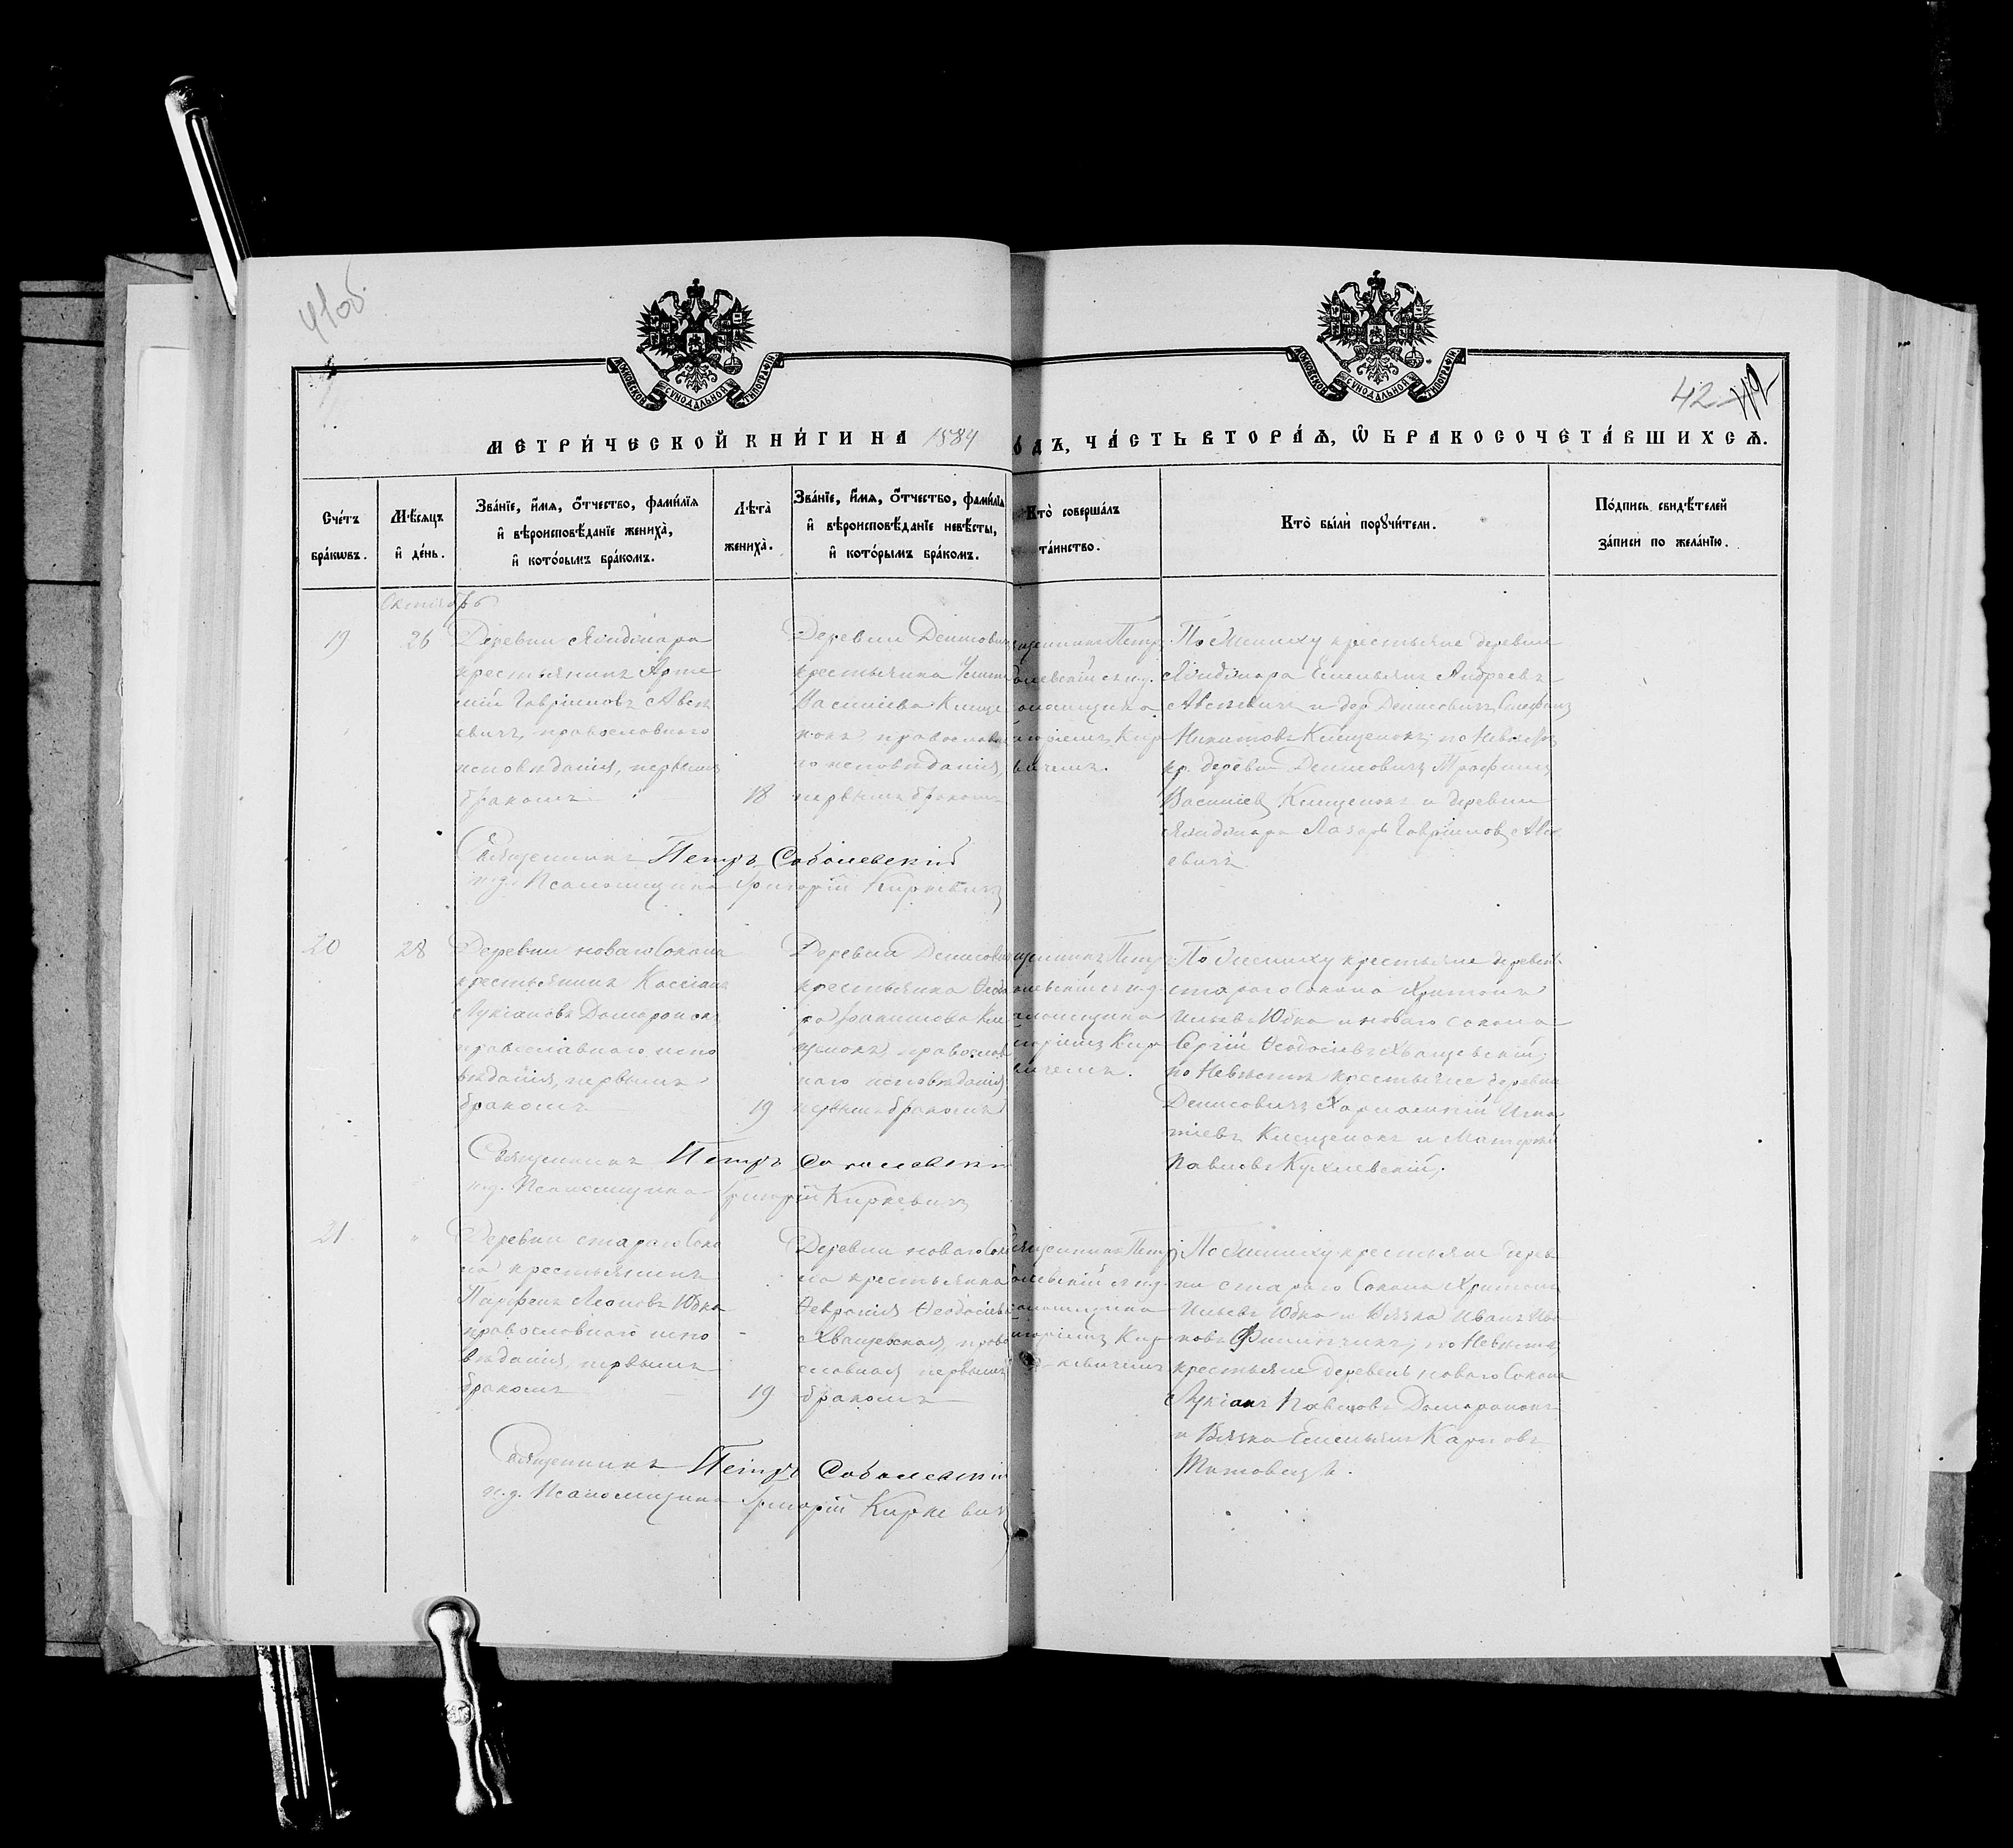 41об.
МОСКОВСКОЙ СѴНОДАЛЬНОЙ ТИПОГРАФІИ
МОСКОВСКОЙ СѴНОДАЛЬНОЙ ТИПОГРАФІИ
42
МЕТРИ́ЧЕСКОЙ КНИ́ГИ НА 1884
О́ДЪ, ЧА́СТЬ ВТОРА́Ѧ, Ѡ҆ БРАКОСОЧЕТА́ВШИХСѦ.
Сче́тъ
бра́кωвъ.
Мѣ́сяцъ
и҆ де́нь.
Зва́нїе, и҆́мѧ, ѻ҆́тчество, фами́лїѧ
и҆ вѣроисповѣ́данїе жениха̀,
и҆ кото́рымъ бра́комъ.
Лѣ́та
жениха̀.
Зва́нїе, и҆́мѧ, ѻ҆́тчество, фами́лїѧ
и҆ вѣроисповѣ́данїе невѣ́сты,
и҆ кото́рымъ бра́комъ.
Кто̀ соверша́лъ
та́инство.
Кто̀ бы́ли порꙋчи́тели.
По́дпись свидѣ́телей
за́писи по жела́нїю.
Октябрь
19
26
Деревни
крестьянинъ Арте
мій Гавріиловъ Авсѣ
евичъ, православнаго
исповѣданія, первымъ
бракомъ
18
Деревни Денисович
крестьянка
Василіева Клеще
нокъ, православна
го исповѣданія,
первымъ бракомъ
щенникъ Петр
олевскій съ и.д.
аломщика
игоріемъ Кир
вичемъ.
По Жениху крестьяне деревни
Емельянъ Андреевъ
Авсѣевичъ и дер. Денисовичъ Стефанъ
Никитовъ Клещенокъ; по Невѣстѣ
кр. деревни Денисовичъ Трофимъ
Василіевъ Клещенокъ и деревни
Лазарь Гавріиловъ Авсѣ
евичъ.
Священникъ Петръ Соболевскій
и.д. Псаломщика Григорій Киркевичъ
20
28
Деревни новаго Сокола
крестьянинъ Кассіанъ
Лукіановъ Домаронокъ
православнаго испо
вѣданія, первымъ
бракомъ
19
Деревни Денисович
крестьянка Ѳеодо
ра Кле
щенокъ, православ
наго исповѣданія
первымъ бракомъ
щенникъ Петр
олевскій съ и.д.
аломщика
игоріемъ Кир
вичемъ.
По Жениху крестьяне деревень
стараго Сокола Харитонъ
Ильевъ Юбко и новаго Сокола
Сергій Ѳеодосіевъ Хващевскій;
по Невѣстѣ крестьяне деревни
Денисовичъ Харлампій Игна
тіевъ Клещенокъ и
Павловъ
Священникъ Петръ Соболевскій
и.д. Псаломщика Григорій Киркевичъ
21
"
Деревни стараго Соко
ла крестьянинъ
Парфенъ Леоновъ Юбко
православнаго испо
вѣданія, первымъ
бракомъ
19
Деревни новаго Соко
ла крестьянка
Ѳевронія Ѳеодосіева
Хващевская, право
славная первымъ
бракомъ
ященникъ Петръ
олевскій съ и.д.
аломщика
игоріемъ Кир
кевичемъ
По Жениху крестьяне дерев
ни стараго Сокола Харитонъ
Ильевъ Юбко и Вязка Иванъ Ива
новъ Филипчикъ; по Невѣстѣ
крестьяне деревень новаго Сокола
Лукіанъ Павловъ Домаронокъ
и Вязка Емельянъ Карповъ
Титовецъ.
Священникъ Петръ Соболевскій
и.д. Псаломщика Григорій Киркевичъ